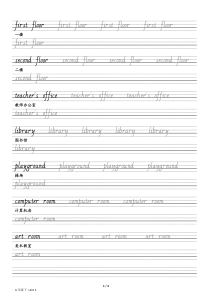 first floor first floor first floor first floor
一楼
first floor
second floor second floor second floor second floor
二楼
second floor
teacher's office teacher's office teacher's office
教师办公室
teacher's office
library library library library library
图书馆
library
playground playground playground playground
操场
playground
computer room computer room computer room
计算机房
computer room
art room art room art room art room
美术教室
art room